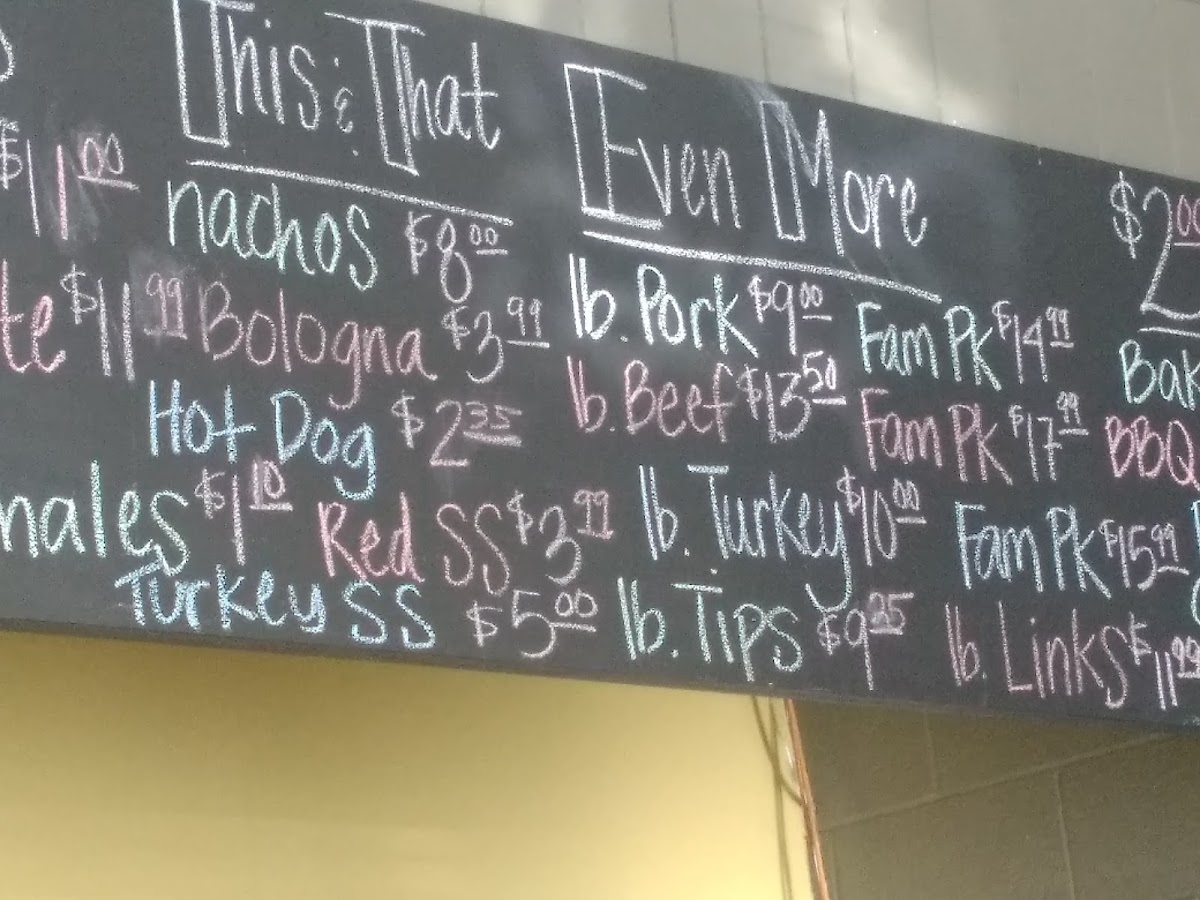 This & That
nachos $8.00
Bologna $3.99
Hot Dog $2.35
males $1.10
Red SS $3.99
Turkey SS $5.00
Even More
lb. Pork $9.00 Fam Pk $14.99
lb. Beef $13.50 Fam Pk $17.99
lb. Turkey $10.00 Fam Pk $15.99
lb. Tips $9.25 lb. Links $11.99
$11.00
te $11.99
$2.00
Bak
BBQ